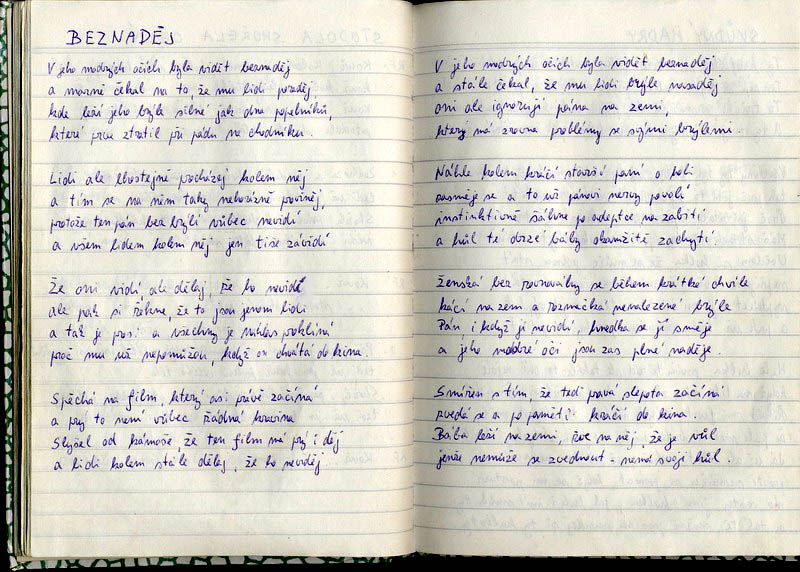 BEZNADĚJ
V jeho modrých očích byla vidět beznaděj
a marně čekal na to, že mu lidi poraděj
kde leží jeho brýle silné jak dna popelníků,
které prve ztratil při pádu na chodníku.
Lidi ale lhostejně procházej kolem něj
a tím se na něm taky nehorázně proviněj,
protože ten pán bez brýlí vůbec nevidí
a všem lidem kolem něj jen tiše závidí
Že oni vidí ale dělaj, že ho nevidě
ale pak si řekne, že to jsou jenom lidi
a tak je prosí a všechny je nahlas proklíná
proč mu už nepomůžou, když on chvátá do kina.
Spěchá na film, který asi právě začíná
a prý to není vůbec žádná kravina
Slyšel od kámoše, že ten film má prý i děj
a lidi kolem stále dělaj, že ho neviděj.
V jeho modrých očích byla vidět beznaděj
a stále čekal, že mu lidi brýle nasaděj
oni ale ignorují pána na zemi,
který má zrovna problémy se svými brýlemi.
Náhle kolem kráčí starší paní o holi
zasměje se a to už pánovi nervy povolí
instinktivně šáhne po adeptce na zabití
a hůl té drzé báby okamžitě zachytí
Ženská bez rovnováhy se během krátké chvíle
kácí na zem a rozmačká nenalezené brýle
Pán i když ji nevidí, hnedka se jí směje
a jeho modré oči jsou zas plné naděje.
Smířen s tím, že teď pravá slepota začíná
zvedá se a po paměti kráčí do kina.
Bába leží na zemi, řve na něj, že je vůl
jenže nemůže se zvednout - nemá svoji hůl.